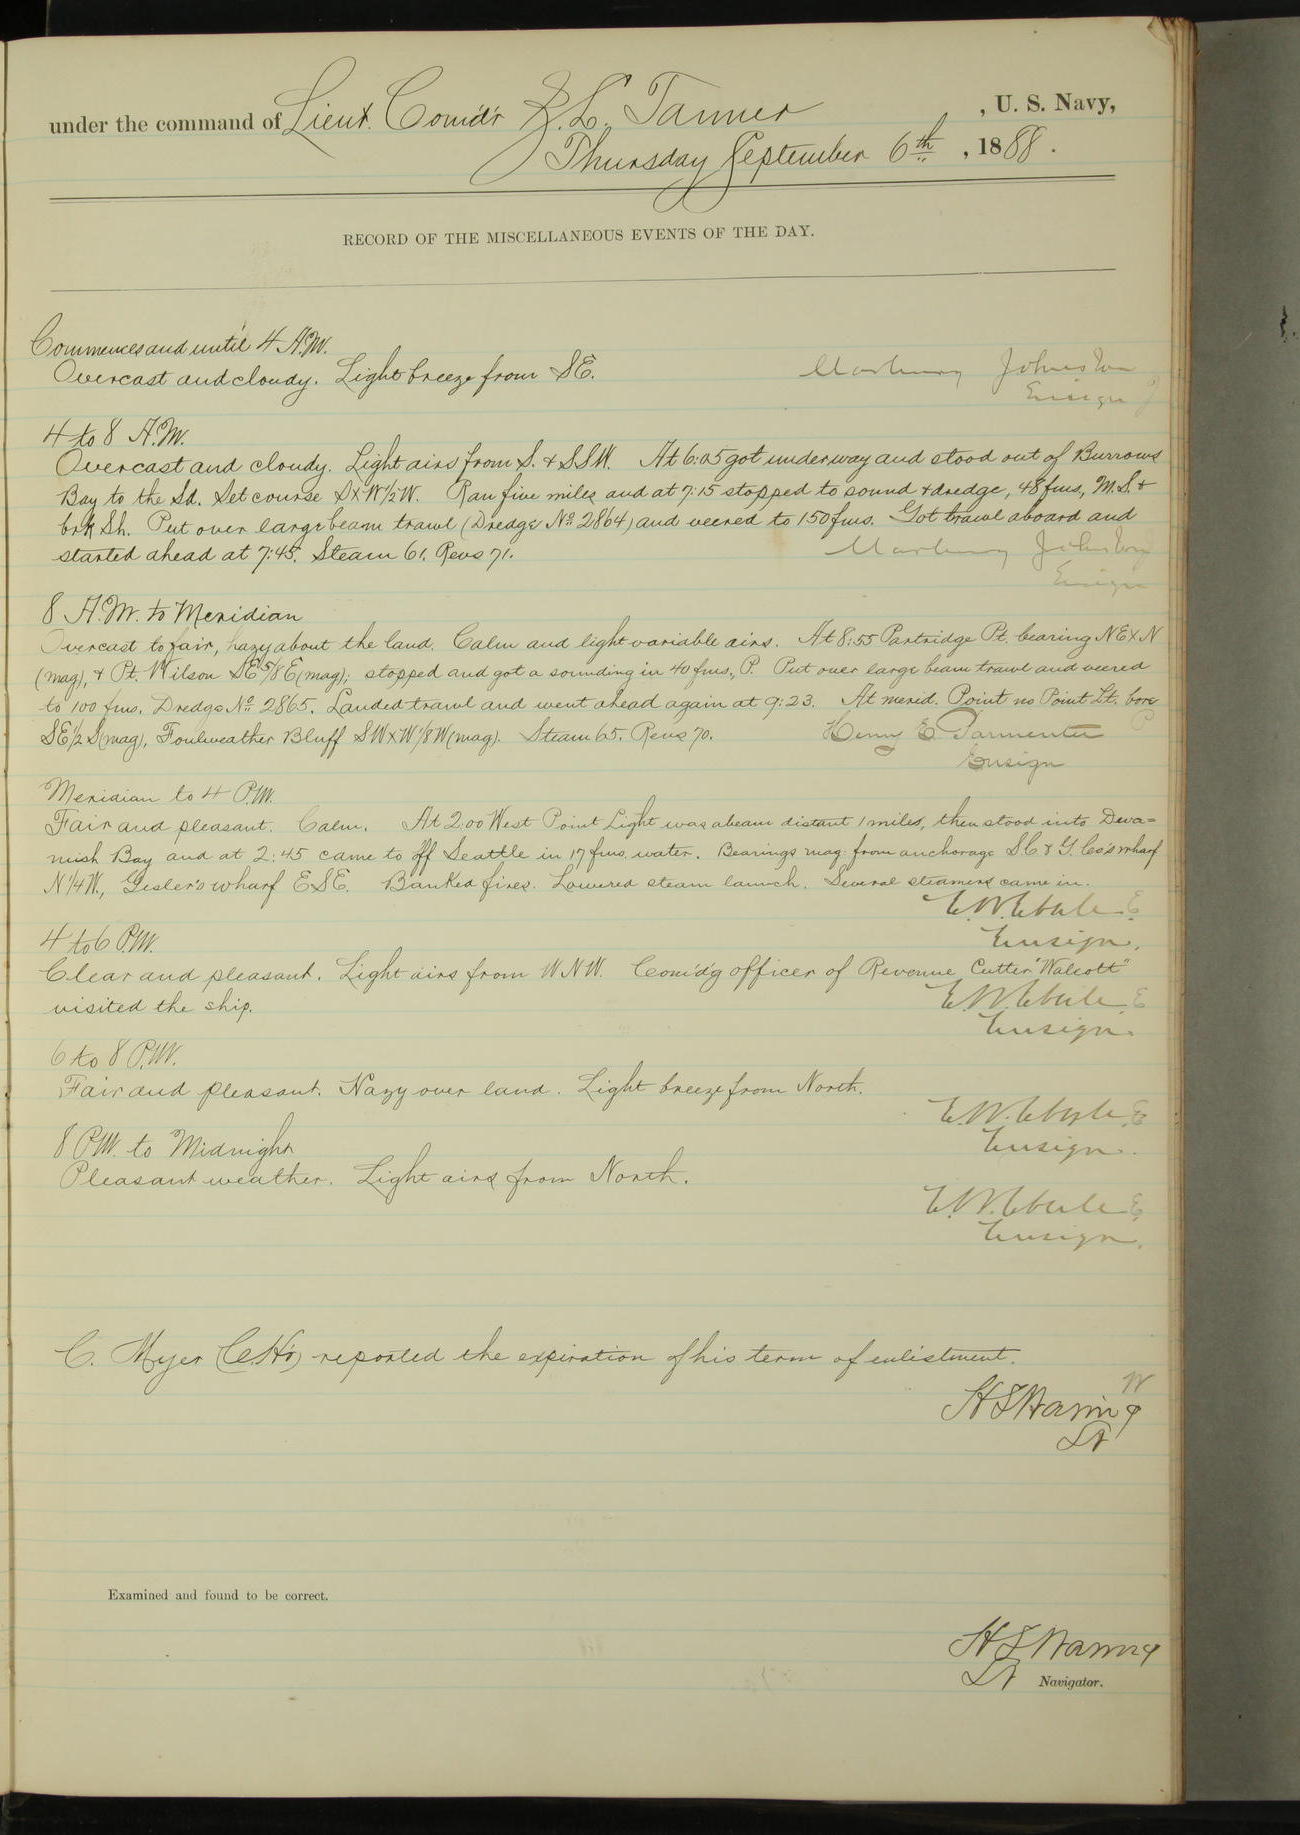 under the command of Lieut. Comd'r Z. L. Tanner, U. S. Navy,
Thursday September 6th, 1888.
RECORD OF THE MISCELLANEOUS EVENTS OF THE DAY.
Commences and until 4 A.M.
Overcast and cloudy. Light breeze from SE. Marbury Johnston
Ensign J
4 to 8 A.M.
Overcast and cloudy. Light airs from S. & SSW. At 6:05 got underway and stood out of Burrows
Bay to the Sd. Set course SxW1/2W. Ran five miles and at 7:15 stopped to sound & dredge, 48 fms, M.S. &
brk Sh. Put over large beam trawl (Dredge No. 2864) and veered to 150 fms. Got trawl aboard and
started ahead at 7:45. Steam 61. Revs 71. Marbury Johnston
Ensign
8 A.M. to Meridian
Overcast to fair, hazy about the land. Calm and light variable airs. At 8:55 Partridge Pt. bearing NExN
(mag), & Pt. Wilson SE5/8E (mag); stopped and got a sounding in 40 fms., P. Put over large beam trawl and veered
to 100 fms. Dredge No. 2865. Landed trawl and went ahead again at 9:23. At merid. Point no Point Lt. bore
SE1/2S (mag), Foulweather Bluff SWxW1/8W (mag). Steam 65. Revs 70. Henry E. Parmenter P
Ensign
Meridian to 4 P.M.
Fair and pleasant. Calm. At 2:00 West Point Light was abeam distant 1 miles, then stood into Dewa=
mish Bay and at 2:45 came to off Seattle in 17 fms. water. Bearings mag. from anchorage SC & Y. Co's wharf
N1/4W., Yesler's wharf ESE. Banked fires. Lowered steam launch. Several steamers came in.
E.W. Eberle E
Ensign.
4 to 6 P.M.
Clear and pleasant. Light airs from WNW. Com'd'g officer of Revenue Cutter "Walcott"
visited the ship. E.W. Eberle E
Ensign.
6 to 8 P.M.
Fair and pleasant. Hazy over land. Light breeze from North.
E.W. Eberle E
Ensign.
8 P.M. to Midnight
Pleasant weather. Light airs from North.
E.W. Eberle E
Ensign.
C. Myer reported the expiration of his term of enlistment.
W
H S Waring
Lt
Examined and found to be correct.
H S Waring
Lt Navigator.